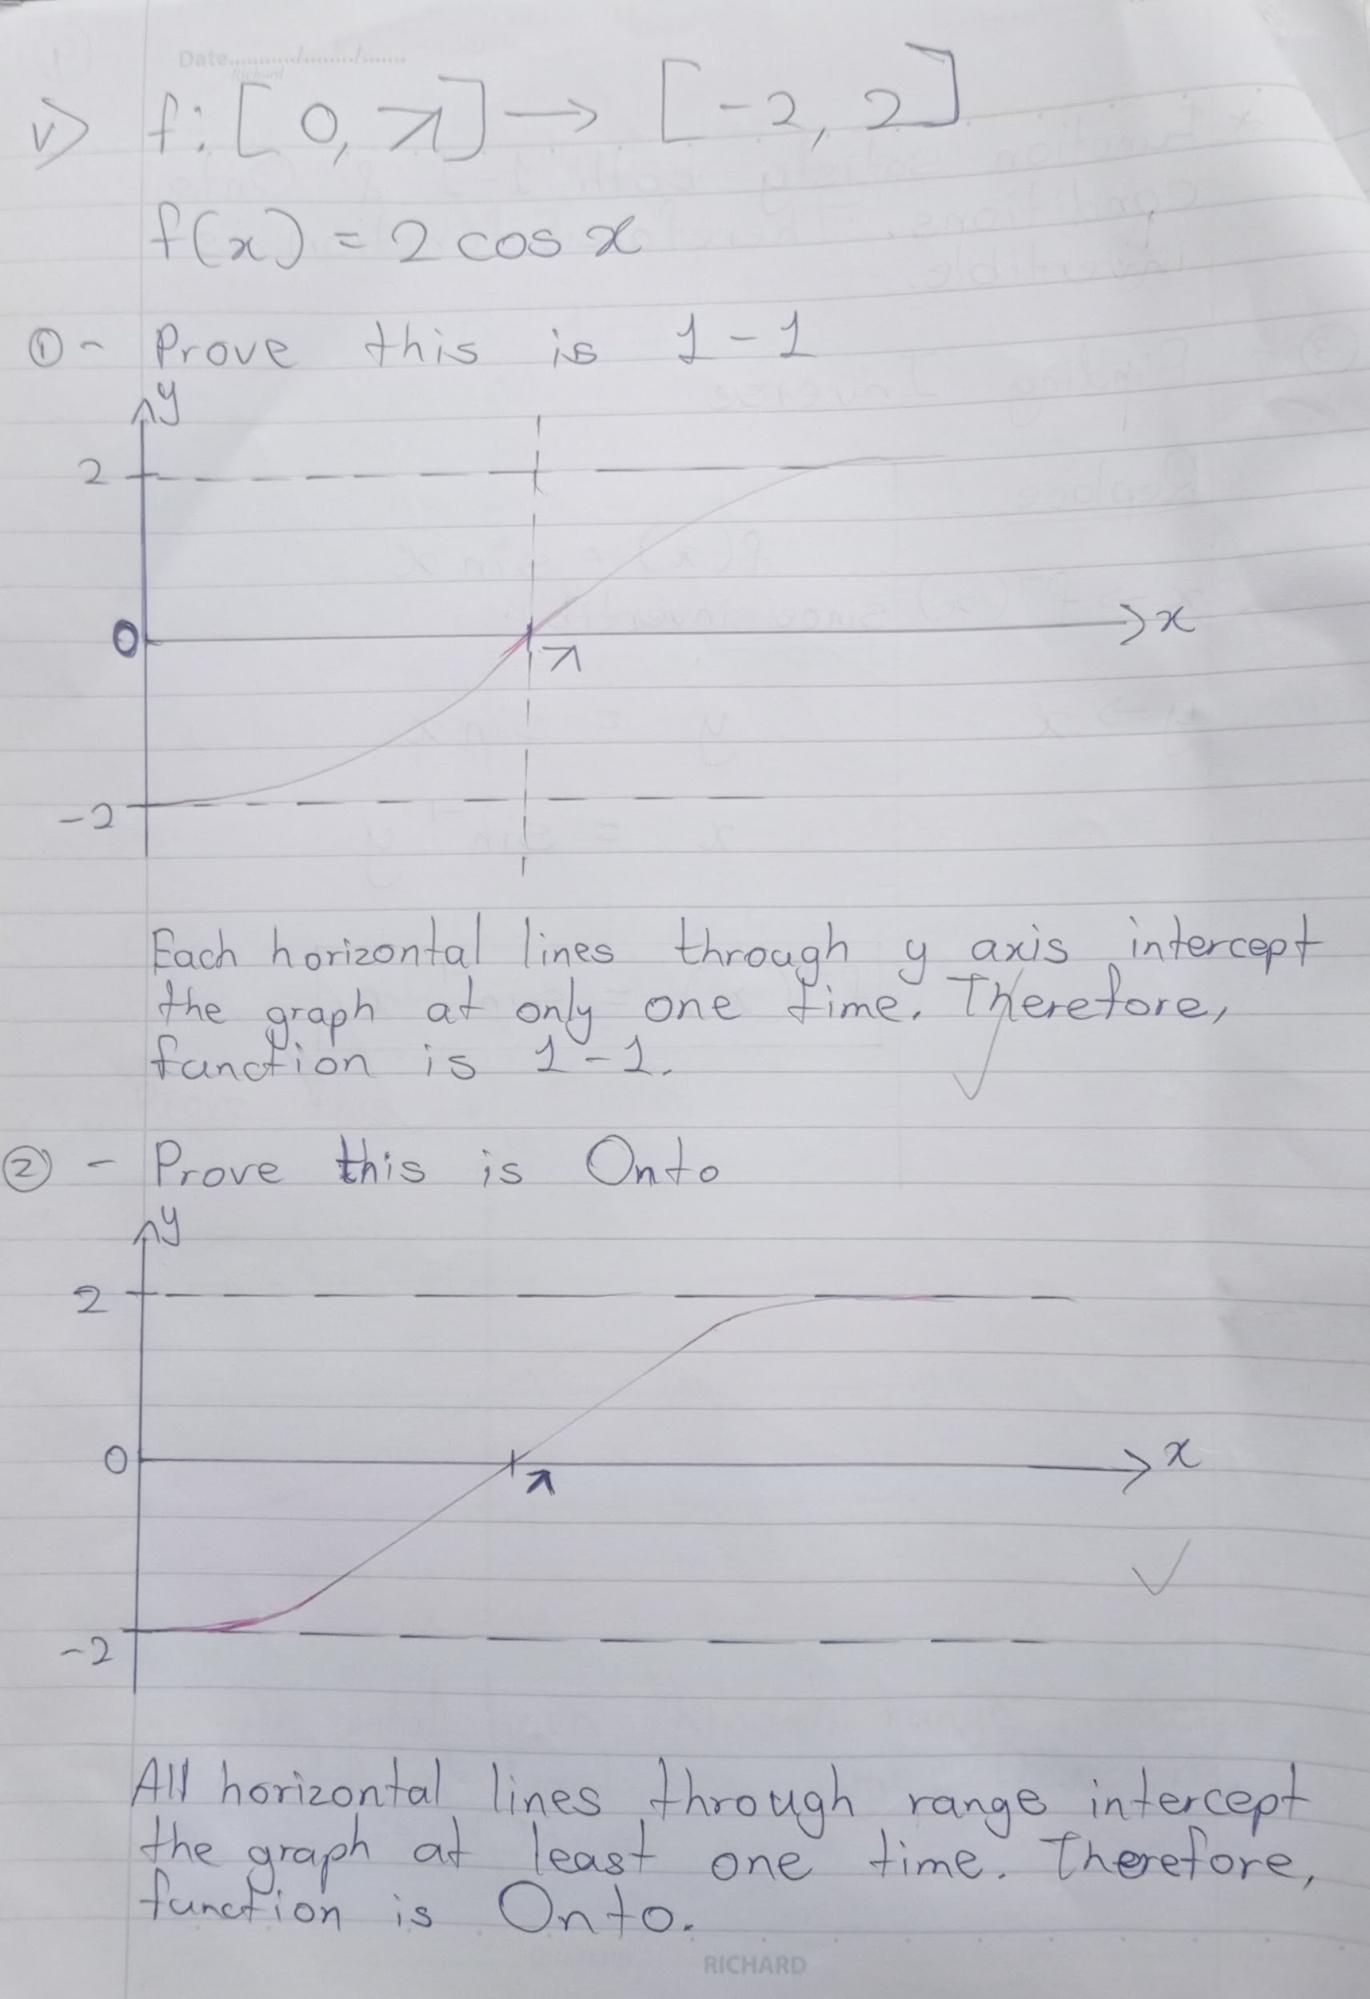 Date......../......../.......
Richard
v) f: [0, π] → [-2, 2]
f(x) = 2 cos x
① - Prove this is 1 - 1
y
2
0
x
π
-2
Each horizontal lines through y axis intercept
the graph at only one time. Therefore,
function is 1 - 1.
② - Prove this is Onto
y
2
0
x
π
-2
All horizontal lines through range intercept
the graph at least one time. Therefore,
function is Onto.
RICHARD